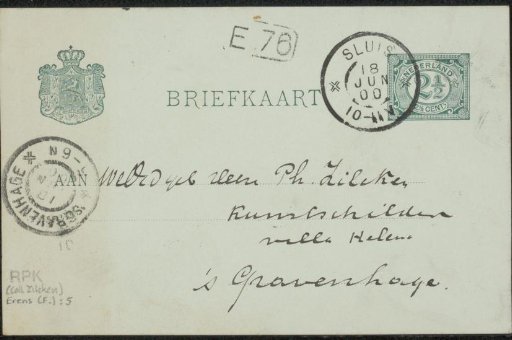 E 76
SLUIS
18
JUN
00
10-11V
NEDERLAND
2½
CENT
BRIEFKAART
'S GRAVENHAGE
6N
AAN WelEdgeb Heer Ph. Zilcken
Kunstschilder
villa Helene
's Gravenhage.
RPK
(coll. Zilcken)
Erens (F.): 5